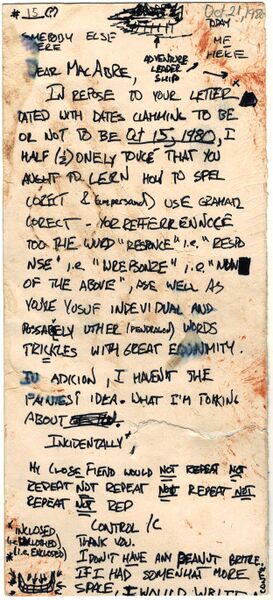 # 15 (?)
Oct 21, 1980
SMEBODY ELSE
ERE
DAY
ME
HERE
ADVENTURE
LEADER
SHIP
DEAR MACABRE,
IN REPOSE TO YOUR LETTER
DATED WITH DATES CLAMMING TO BE
OR NOT TO BE Oct 15, 1980, I
HALF (½) ONELY TOUCÉ THAT YOU
AUGHT TO LERN HOW TO SPEL
CORECT & (ampersand) USE GRAMAR
CORECT - YOR REFFERRENNOCE
TOO THE WURD "RESPONCE" i.e. "RESPO
NSE" i.e. "WREPSONZE" i.e. "NON
OF THE ABOVE", ASE WELL AS
YOU'RE YUSUF INDEVIDUAL AND
POSSABELY UTHER (PENDRAGON) WORDS
TRICKLES WITH GREAT EQUNIMITY.
IN ADICION, I HAVEN'T THE
FAINTEST IDEA. WHAT I'M TOLKING
ABOUT
INCIDENTALLY,
MY CLOSE FIEND WOULD NOT REPEAT NOT
REPEAT NOT REPEAT NOT REPEAT NOT
REPEAT NOT REP
CONTROL /C
* INCLOSED
(i.e. ENCLOSED)
(i.e. ENCLOSED)
THANK YOU.
I DON'T HAVE ANY PEANUT BRITTE.
IF I HAD SOMEWHAT MORE
SPACE, I WOULD WRITE